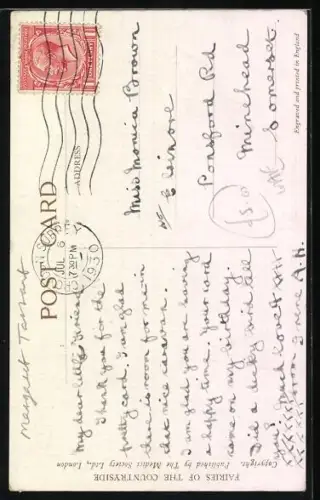 Margaret Tarrant
FAIRIES OF THE COUNTRYSIDE
Copyright. Published by The Medici Society Ltd., London
POST CARD
ADDRESS
JUL
1930
My dear little friend
Thank you for the
pretty card. I am glad
there is room for me in
that nice caravan.
I am glad you are having
a happy time. Your card
came on my birthday.
Did a dicky bird tell
you? Much love &
from Irene A. H.
xxxxxxxx
Miss Monica Brown
Elsinore
Ponsford Rd
Minehead
Somerset
Engraved and printed in England